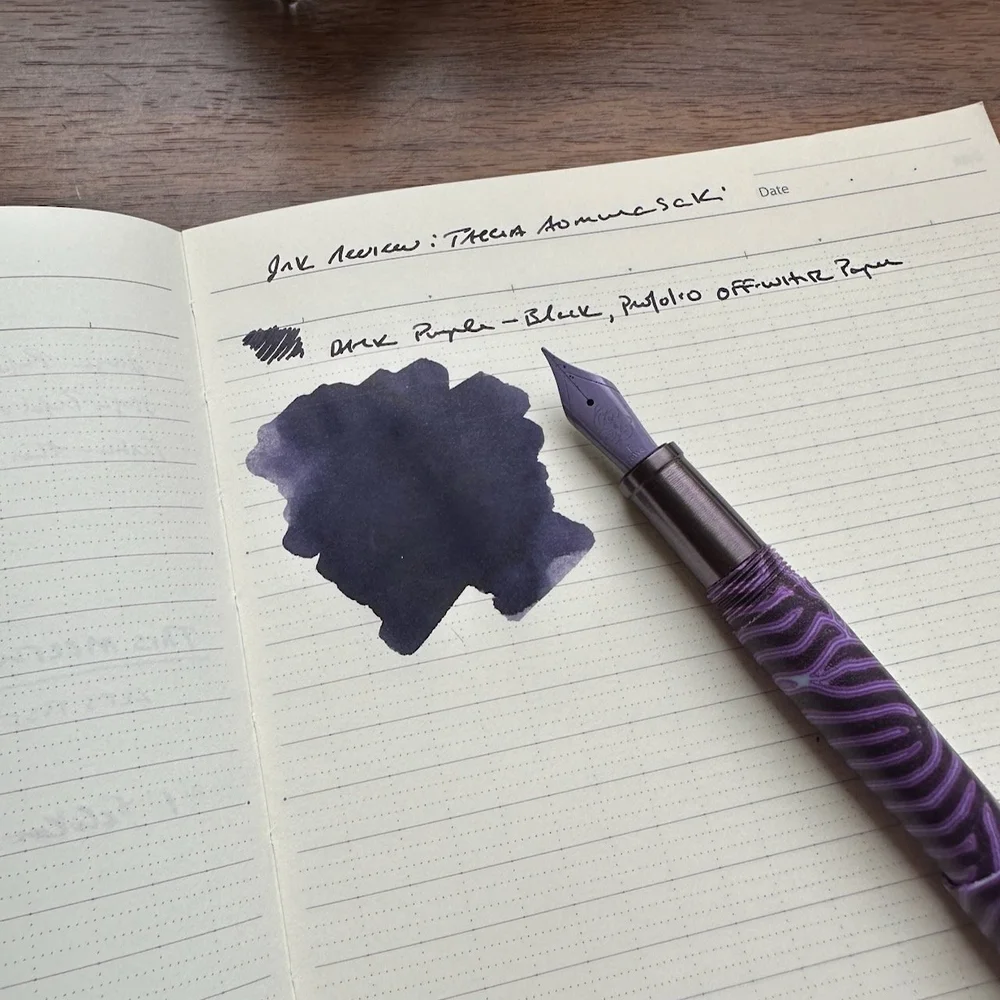 Ink Review: TACCIA Aomurasaki
Date
Dark Purple-Black, Profolio OFF-WHITE Paper